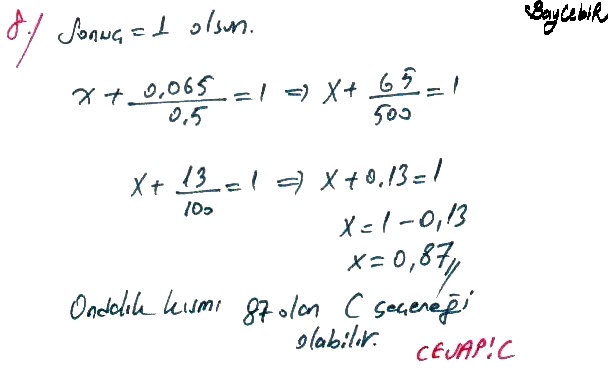 BayCebiR
8./ Sonuç = 1 olsun.
x + 0,065/0,5 = 1 ⇒ x + 65/500 = 1
x + 13/100 = 1 ⇒ x + 0,13 = 1
x = 1 - 0,13
x = 0,87//
Ondalık kısmı 87 olan C seçeneği
olabilir.
CEVAP: C